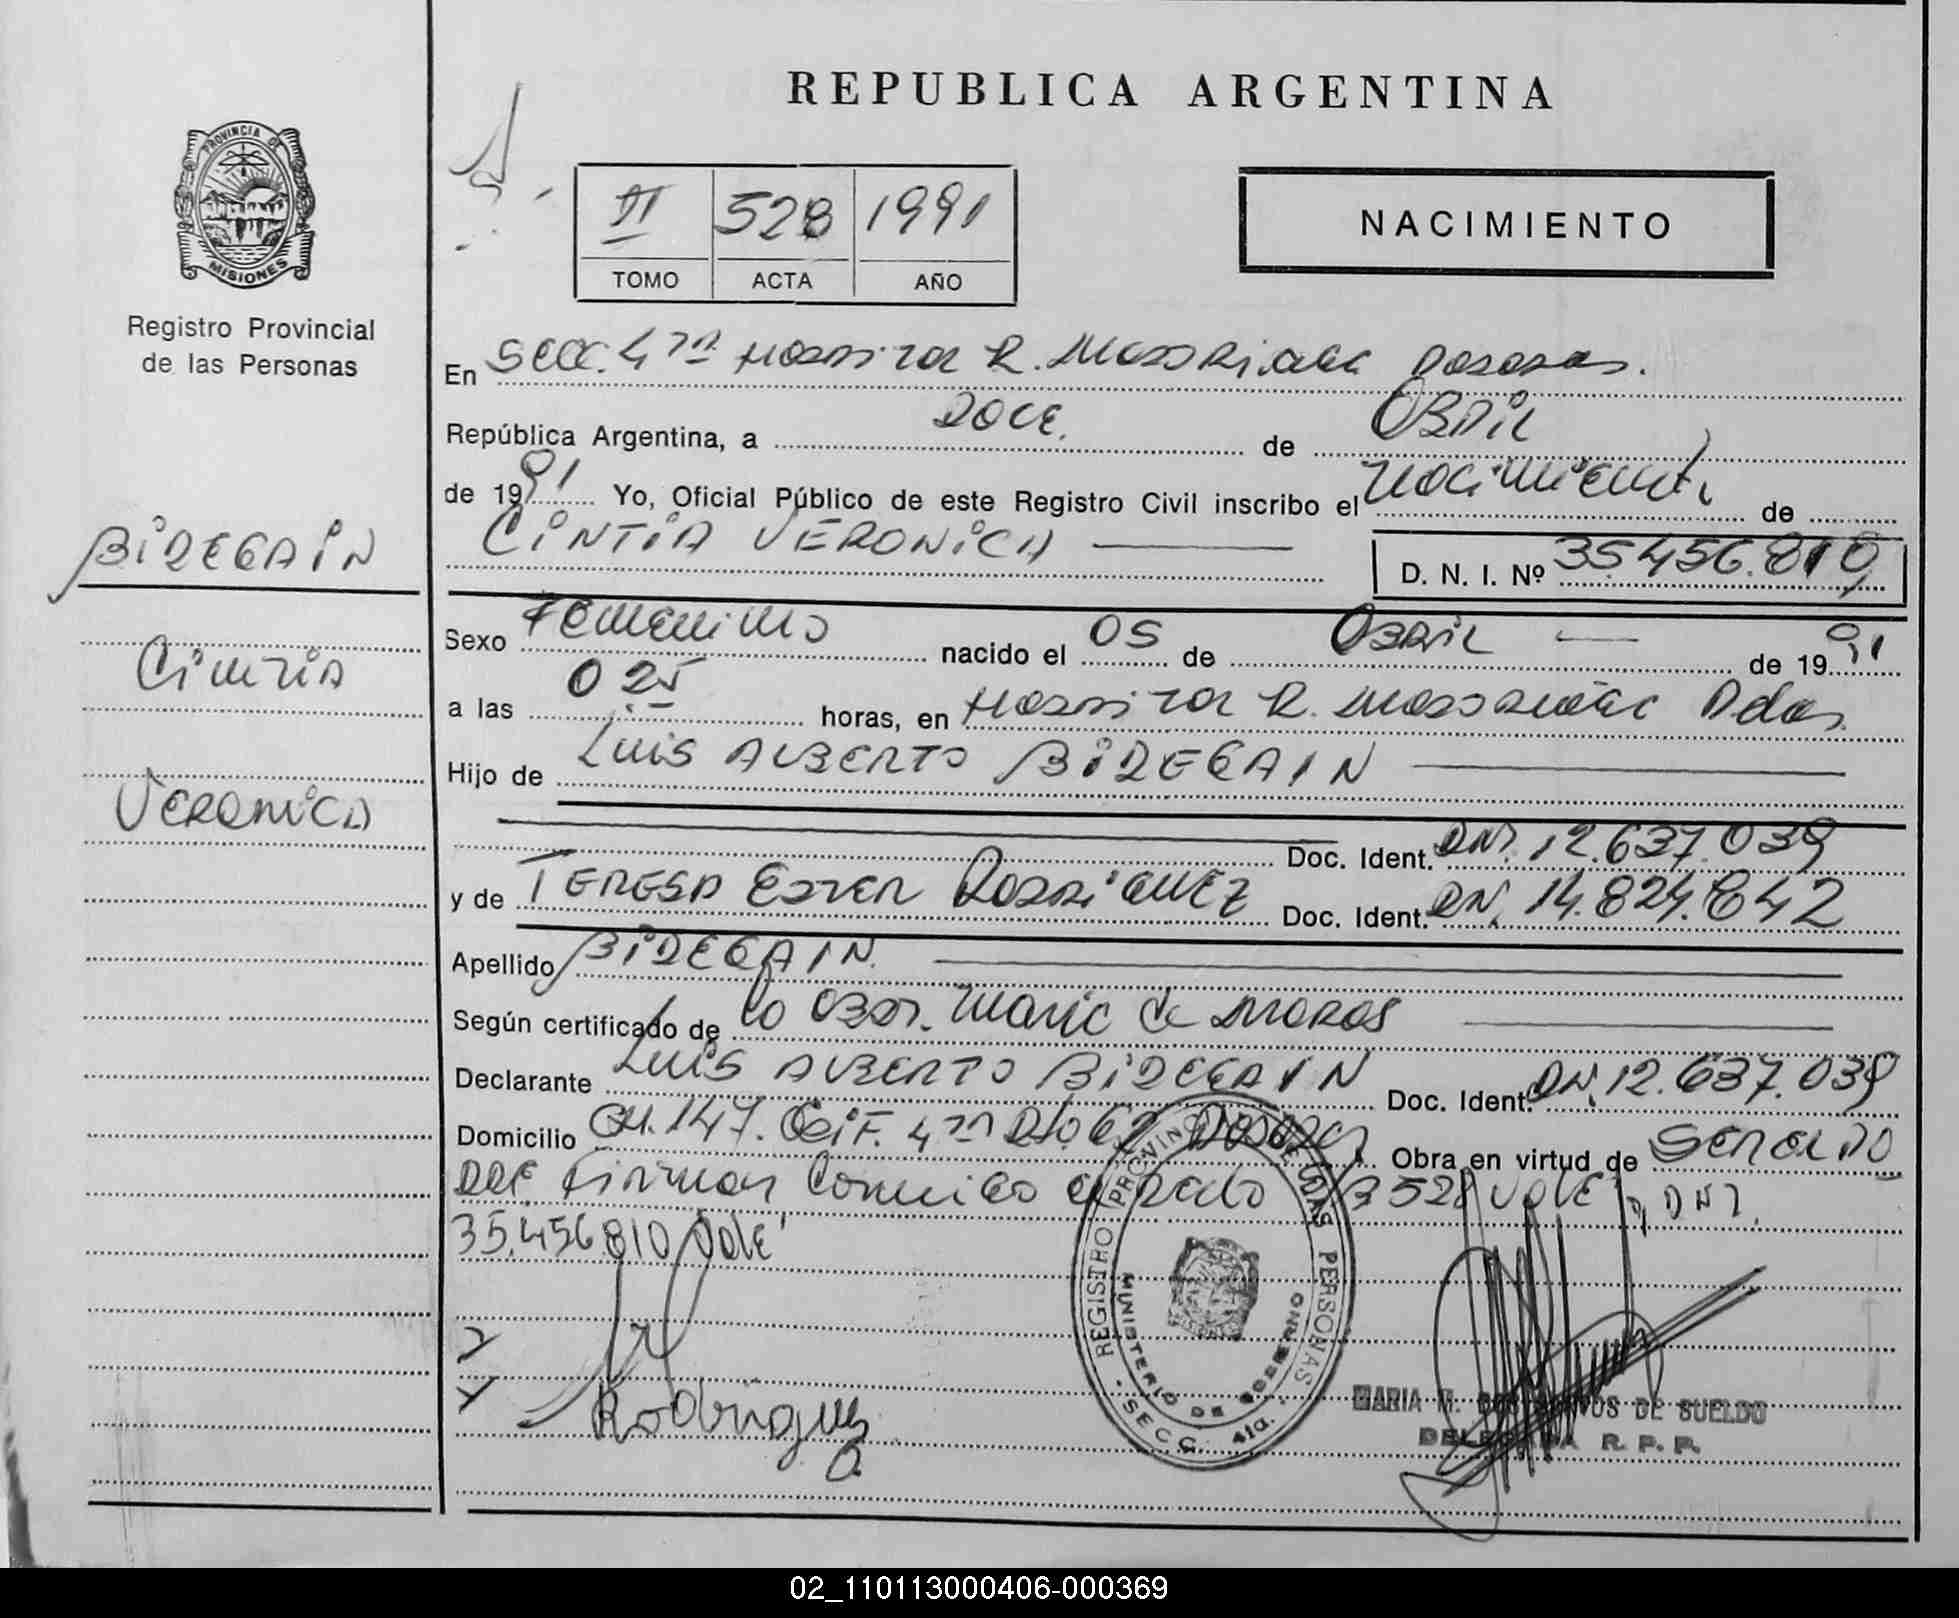 REPUBLICA ARGENTINA
PROVINCIA DE
MISIONES
Registro Provincial
de las Personas
II 528 1991
TOMO ACTA AÑO
NACIMIENTO
En Secc. 4ta Hospital R. Madariaga Posadas.
República Argentina, a DOCE. de Abril
de 1991 Yo, Oficial Público de este Registro Civil inscribo el nacimiento de
CINTIA VERONICA
D. N. I. Nº 35.456.810
BIDEGAIN
Cintia
VERONICA
Sexo Femenino nacido el 05 de Abril de 1991
a las 0 25 horas, en Hospital R. Madariaga Pdas.
Hijo de LUIS ALBERTO BIDEGAIN
Doc. Ident. DNI. 12.637.039
y de TERESA ESTER RODRIGUEZ Doc. Ident. DNI. 14.824.842
Apellido BIDEGAIN.
Según certificado de la Obst. Maric de
Declarante LUIS ALBERTO BIDEGAIN Doc. Ident. DNI. 12.637.039
Domicilio CH. 147. Edif. 4ta Dto 62 Posadas Obra en virtud de
528 VALE DNI.
35.456.810 Vale
Rodriguez
REGISTRO PROVINCIAL DE LAS PERSONAS
MINISTERIO DE GOBIERNO
SECC. 4ta.
MARIA DE SUELDO
DELEGADA R. P. P.
02_110113000406-000369